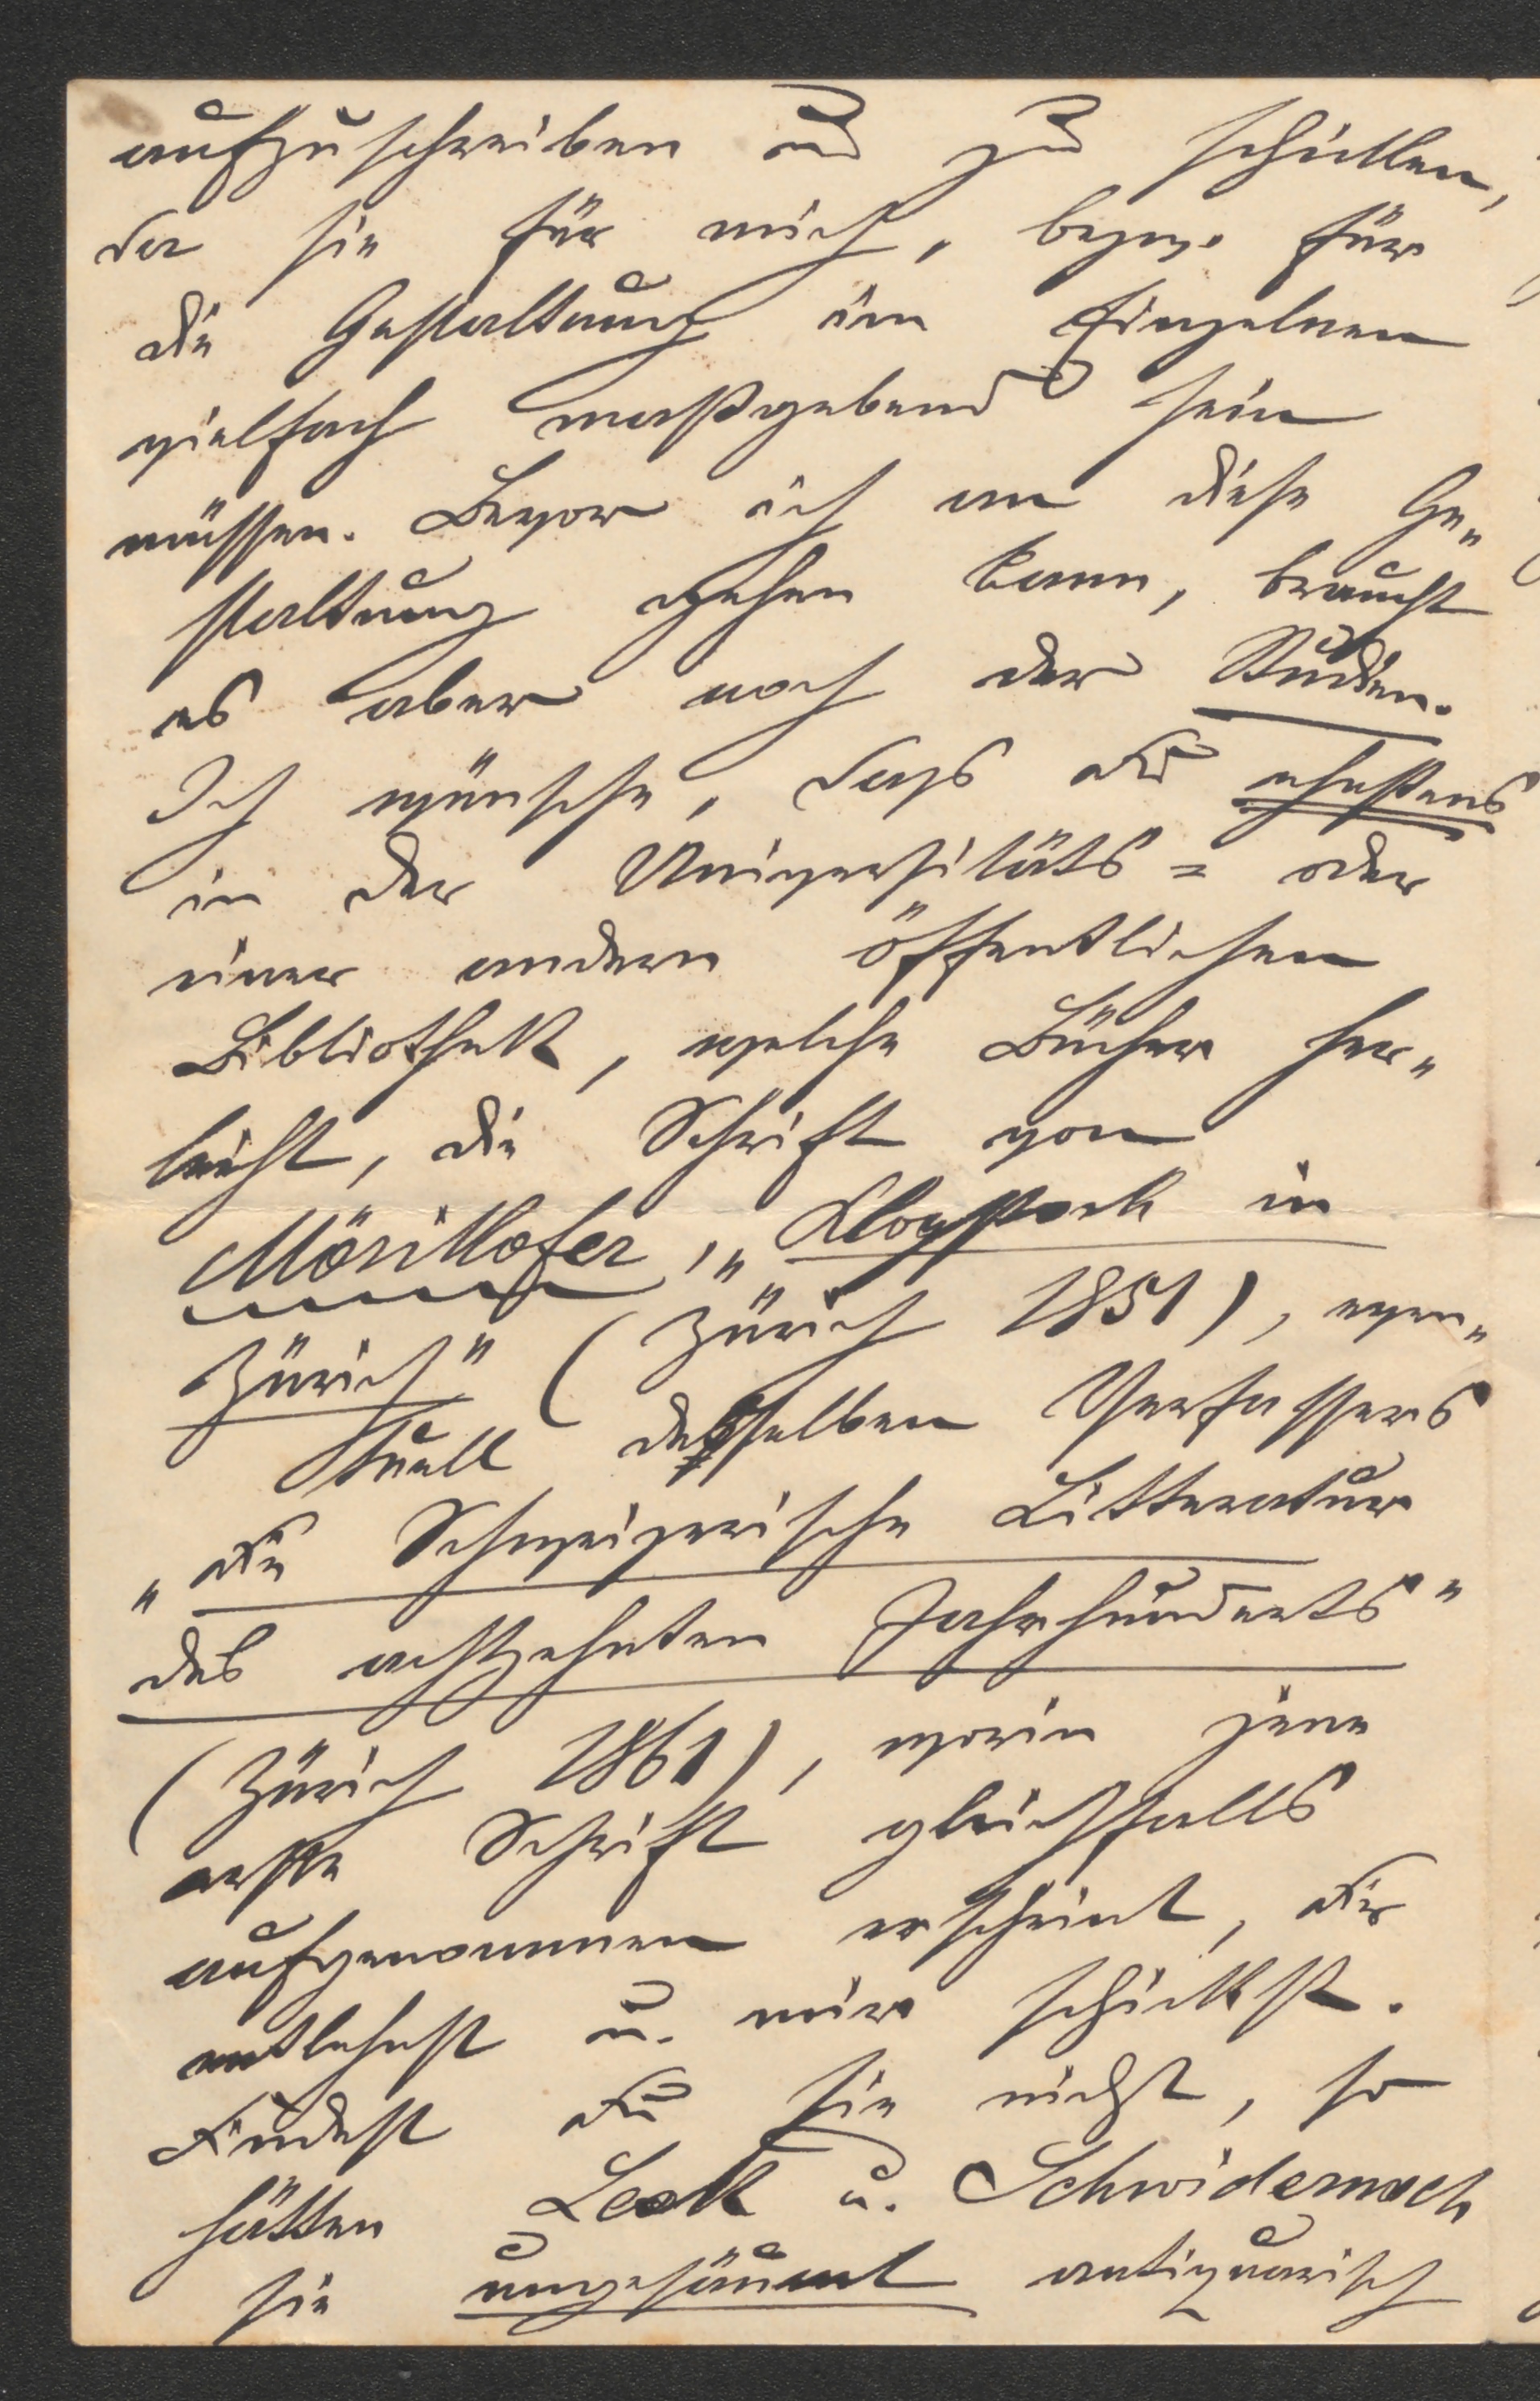 aufzuschreiben und zu schicken,
da sie für mich, bezw. für
die Gestaltung im Einzelnen
vielfach maßgebend sein
müssen. Bevor ich an diese Ge„
staltung gehen kann, braucht
es aber noch der Studien.
Ich wünsche, dass Du ehestens
in der Universitäts= oder
einer andern öffentlichen
Bibliothek, welche Bücher her„
leiht, die Schrift von
Mörikofer, „Klopstock in
Zürich" (Zürich 1851), even„
tuell desselben Verfassers
„Die Schweizerische Litteratur
des achtzehnten Jahrhunderts"
(Zürich 1861), worin jene
erste Schrift gleichfalls
aufgenommen erscheint, Dir
entlehnst u. mir schickst.
Findest Du sie nicht, so
hätten Leok u. Schwidernoch
sie ungesäumt antiquarisch